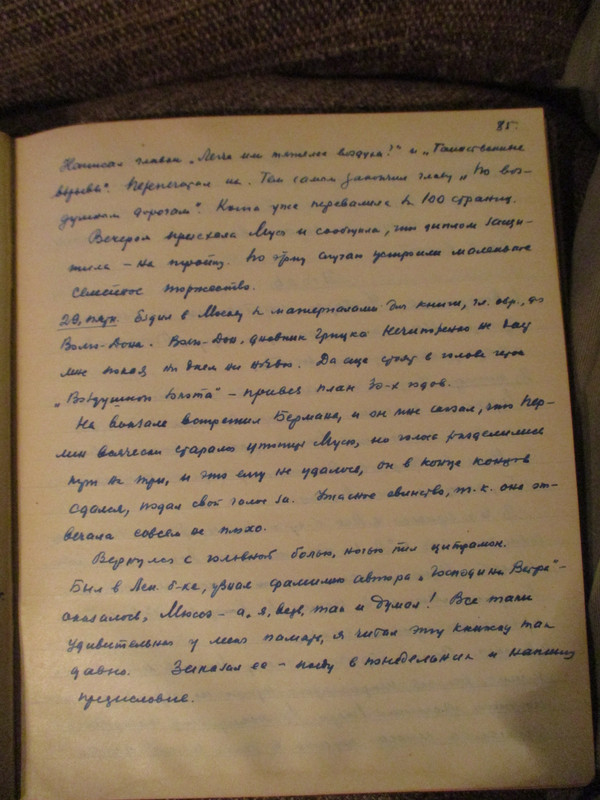 85.
Написал главы „Легче или тяжелее воздуха?" и „Таинственные
взрывы". Перепечатал их. Тем самым закончил главу „По воз-
душным дорогам". Книга уже перевалила к 100 страниц.
Вечером приехала Муся и сообщила, что диплом защи-
тила – на тройку. По этому случаю устроили маленькое
семейное торжество.
29, пятн. Ездил в Москву к материалами для книги, гл. обр., до
Волго-Дона. Волго-Дон, дневник Грицко Нечипоренко не дают
мне покоя ни днем ни ночью. Да еще стоят в голове герои
„Воздушного флота" – привез план 30-х годов.
На вокзале встретил Бермана, и он мне сказал, что
всячески старался утопить Мусю, но голоса разделились
на три, и это ему не удалось, он в конце концов
сдался, подал свой голос за. Ужасное свинство, т. к. она от-
вечала совсем не плохо.
Вернулся с головной болью, ночью пил цитрамон.
Был в Лен. б-ке, узнал фамилию автора „Господина Ветра" –
оказалось, Мюссэ – а, я, ведь, так и думал! Все таки
удивительная у меня память, я читал эту книжку так
давно. Заказал ее – поеду в понедельник и напишу
предисловие.